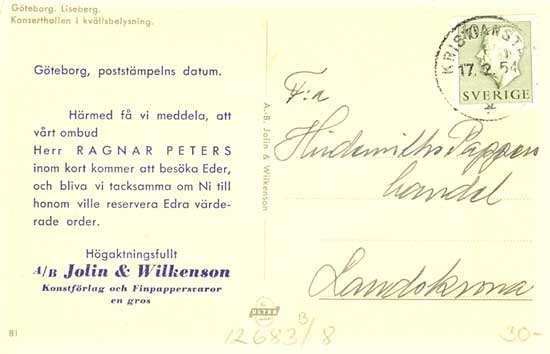 Göteborg. Liseberg.
Konserthallen i kvällsbelysning.
Göteborg, poststämpelns datum.
Härmed få vi meddela, att
vårt ombud
Herr RAGNAR PETERS
inom kort kommer att besöka Eder,
och bliva vi tacksamma om Ni till
honom ville reservera Edra värde-
rade order.
Högaktningsfullt
A/B Jolin & Wilkenson
Konstförlag och Finpappersvaror
en gros
81
A.-B. Jolin & Wilkenson
ULTRA
KRISTIANST
17. 2. 54
SVERIGE
F:a
Pappers
handel
Landskrona
12683 B/8
30-